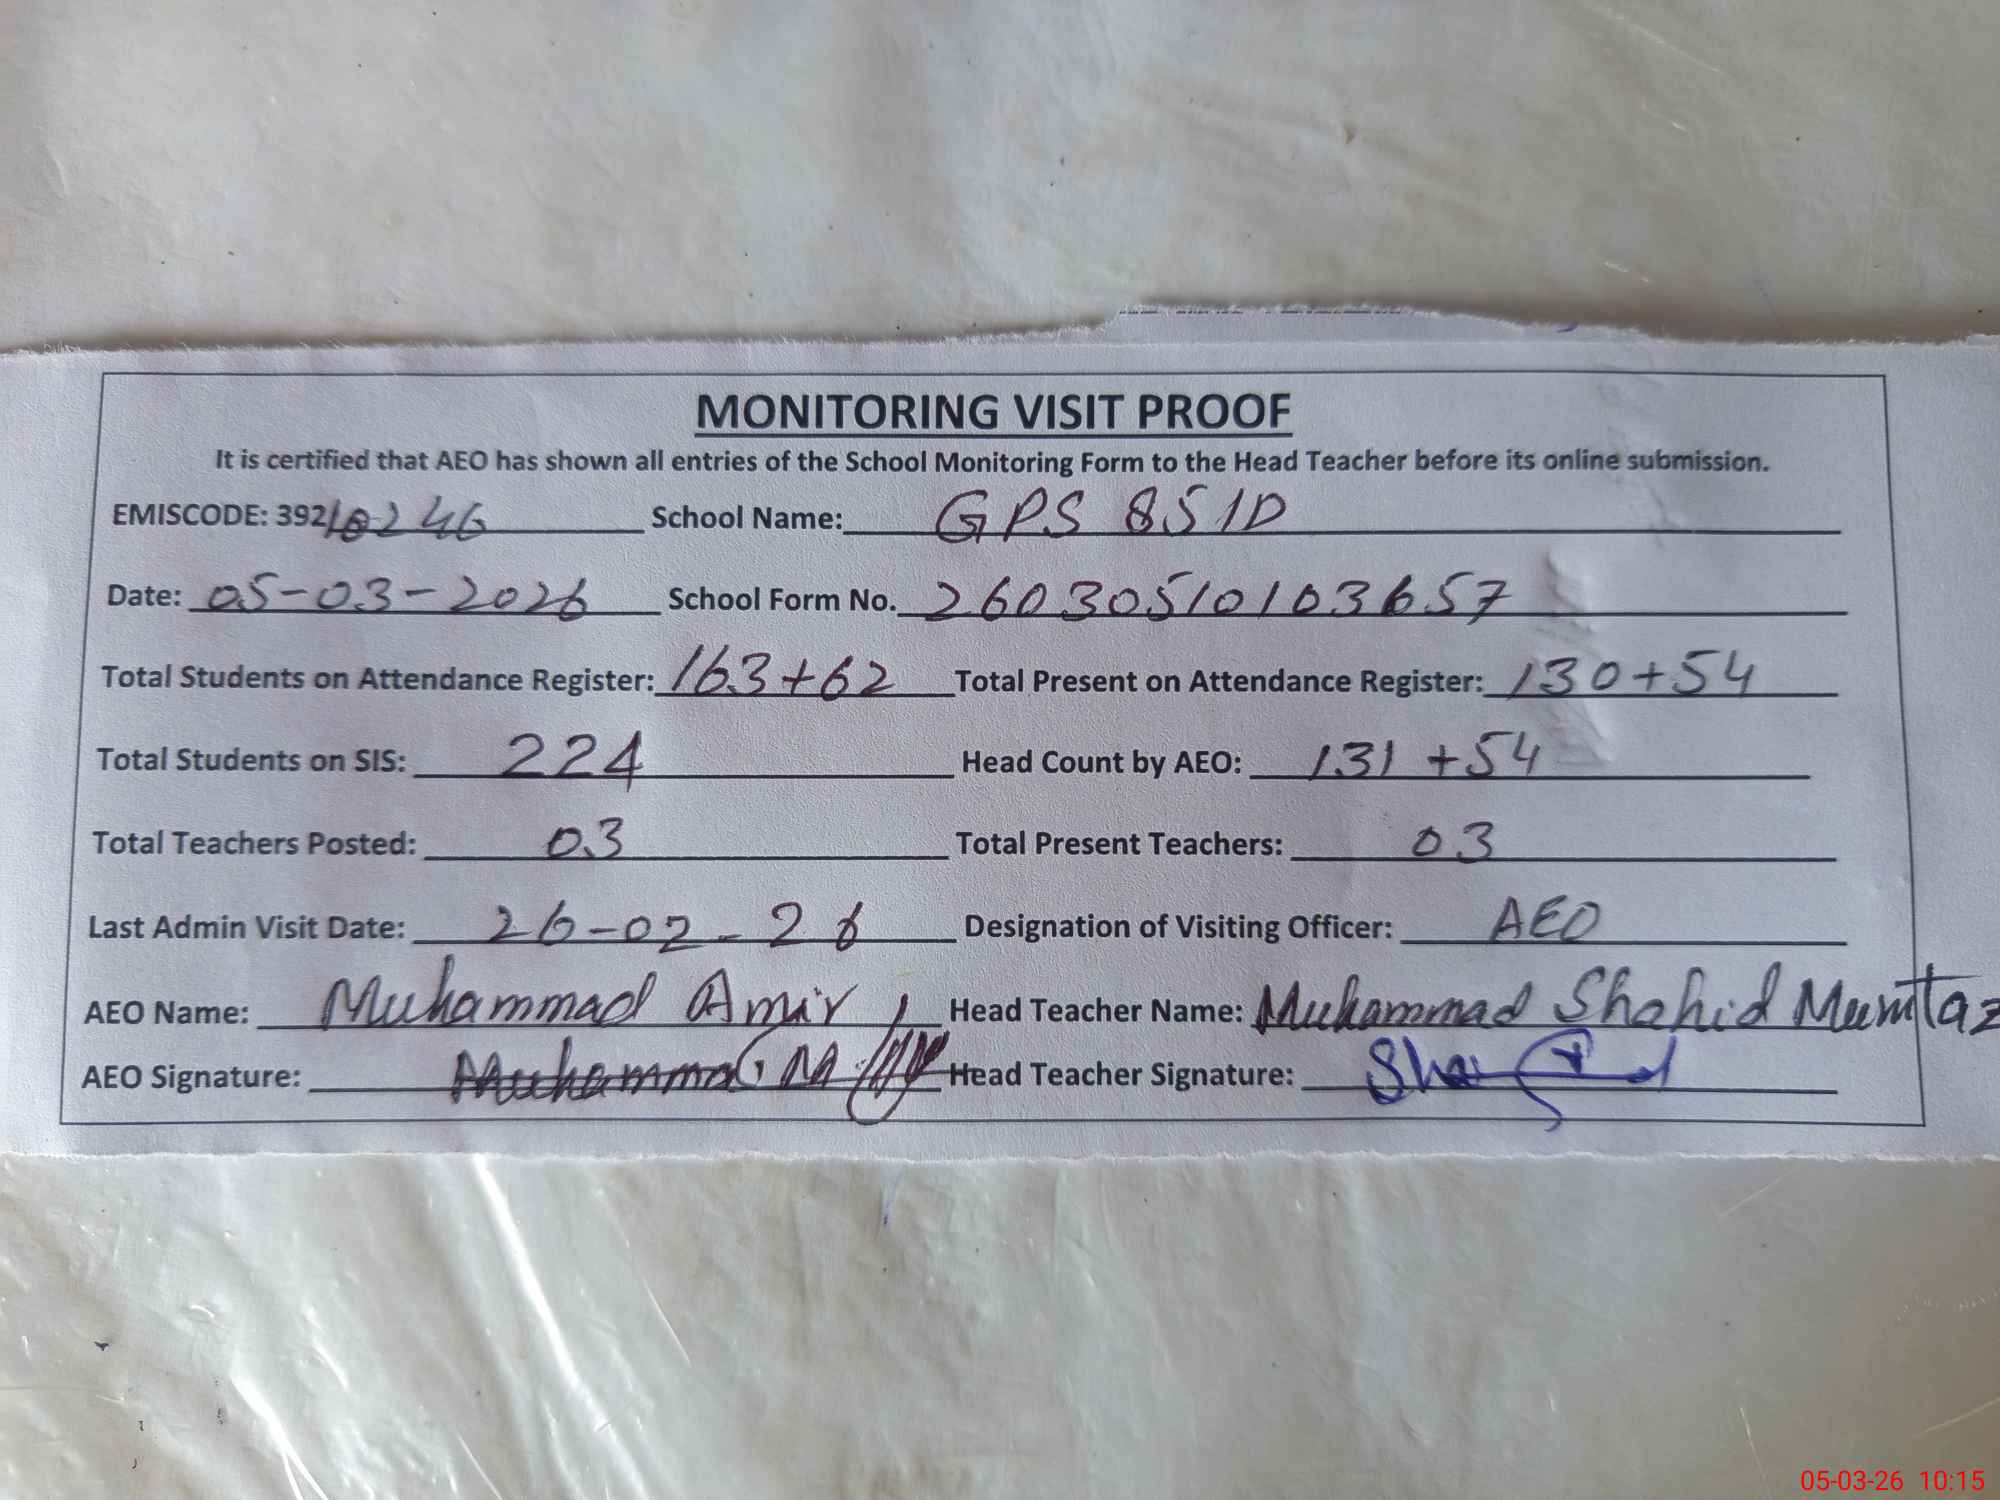 MONITORING VISIT PROOF
It is certified that AEO has shown all entries of the School Monitoring Form to the Head Teacher before its online submission.
EMISCODE: 39210246 School Name: GPS 851D
Date: 05-03-2026 School Form No. 26030510103657
Total Students on Attendance Register: 163+62 Total Present on Attendance Register: 130+54
Total Students on SIS: 224 Head Count by AEO: 131+54
Total Teachers Posted: 03 Total Present Teachers: 03
Last Admin Visit Date: 26-02-26 Designation of Visiting Officer: AEO
AEO Name: Muhammad Amir Head Teacher Name: Muhammad Shahid Mumtaz
AEO Signature: Muhammad Head Teacher Signature:
05-03-26 10:15